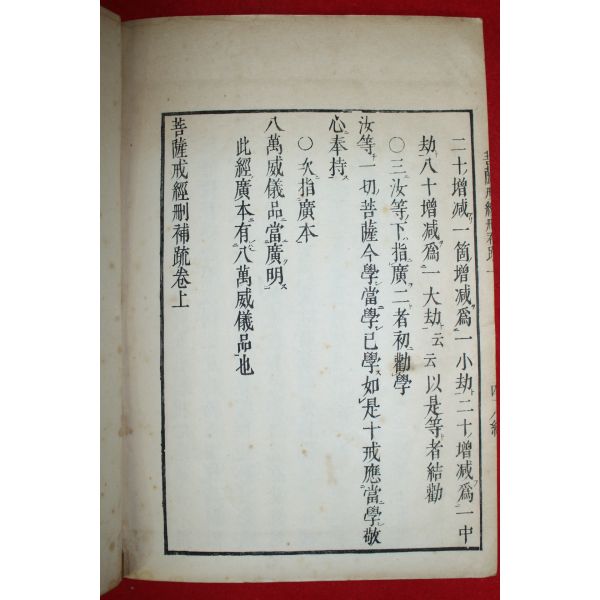 二十増減一箇増減爲一小劫二十増減爲一中
劫八十増減爲一大劫云云以是等者結勸
〇三汝等下指廣二者初勸學
汝等一切菩薩今學當學已學如是十戒應當學敬
心奉持
〇次指廣本
八萬威儀品當廣明
此經廣本有八萬威儀品也
菩薩戒經刪補疏卷上